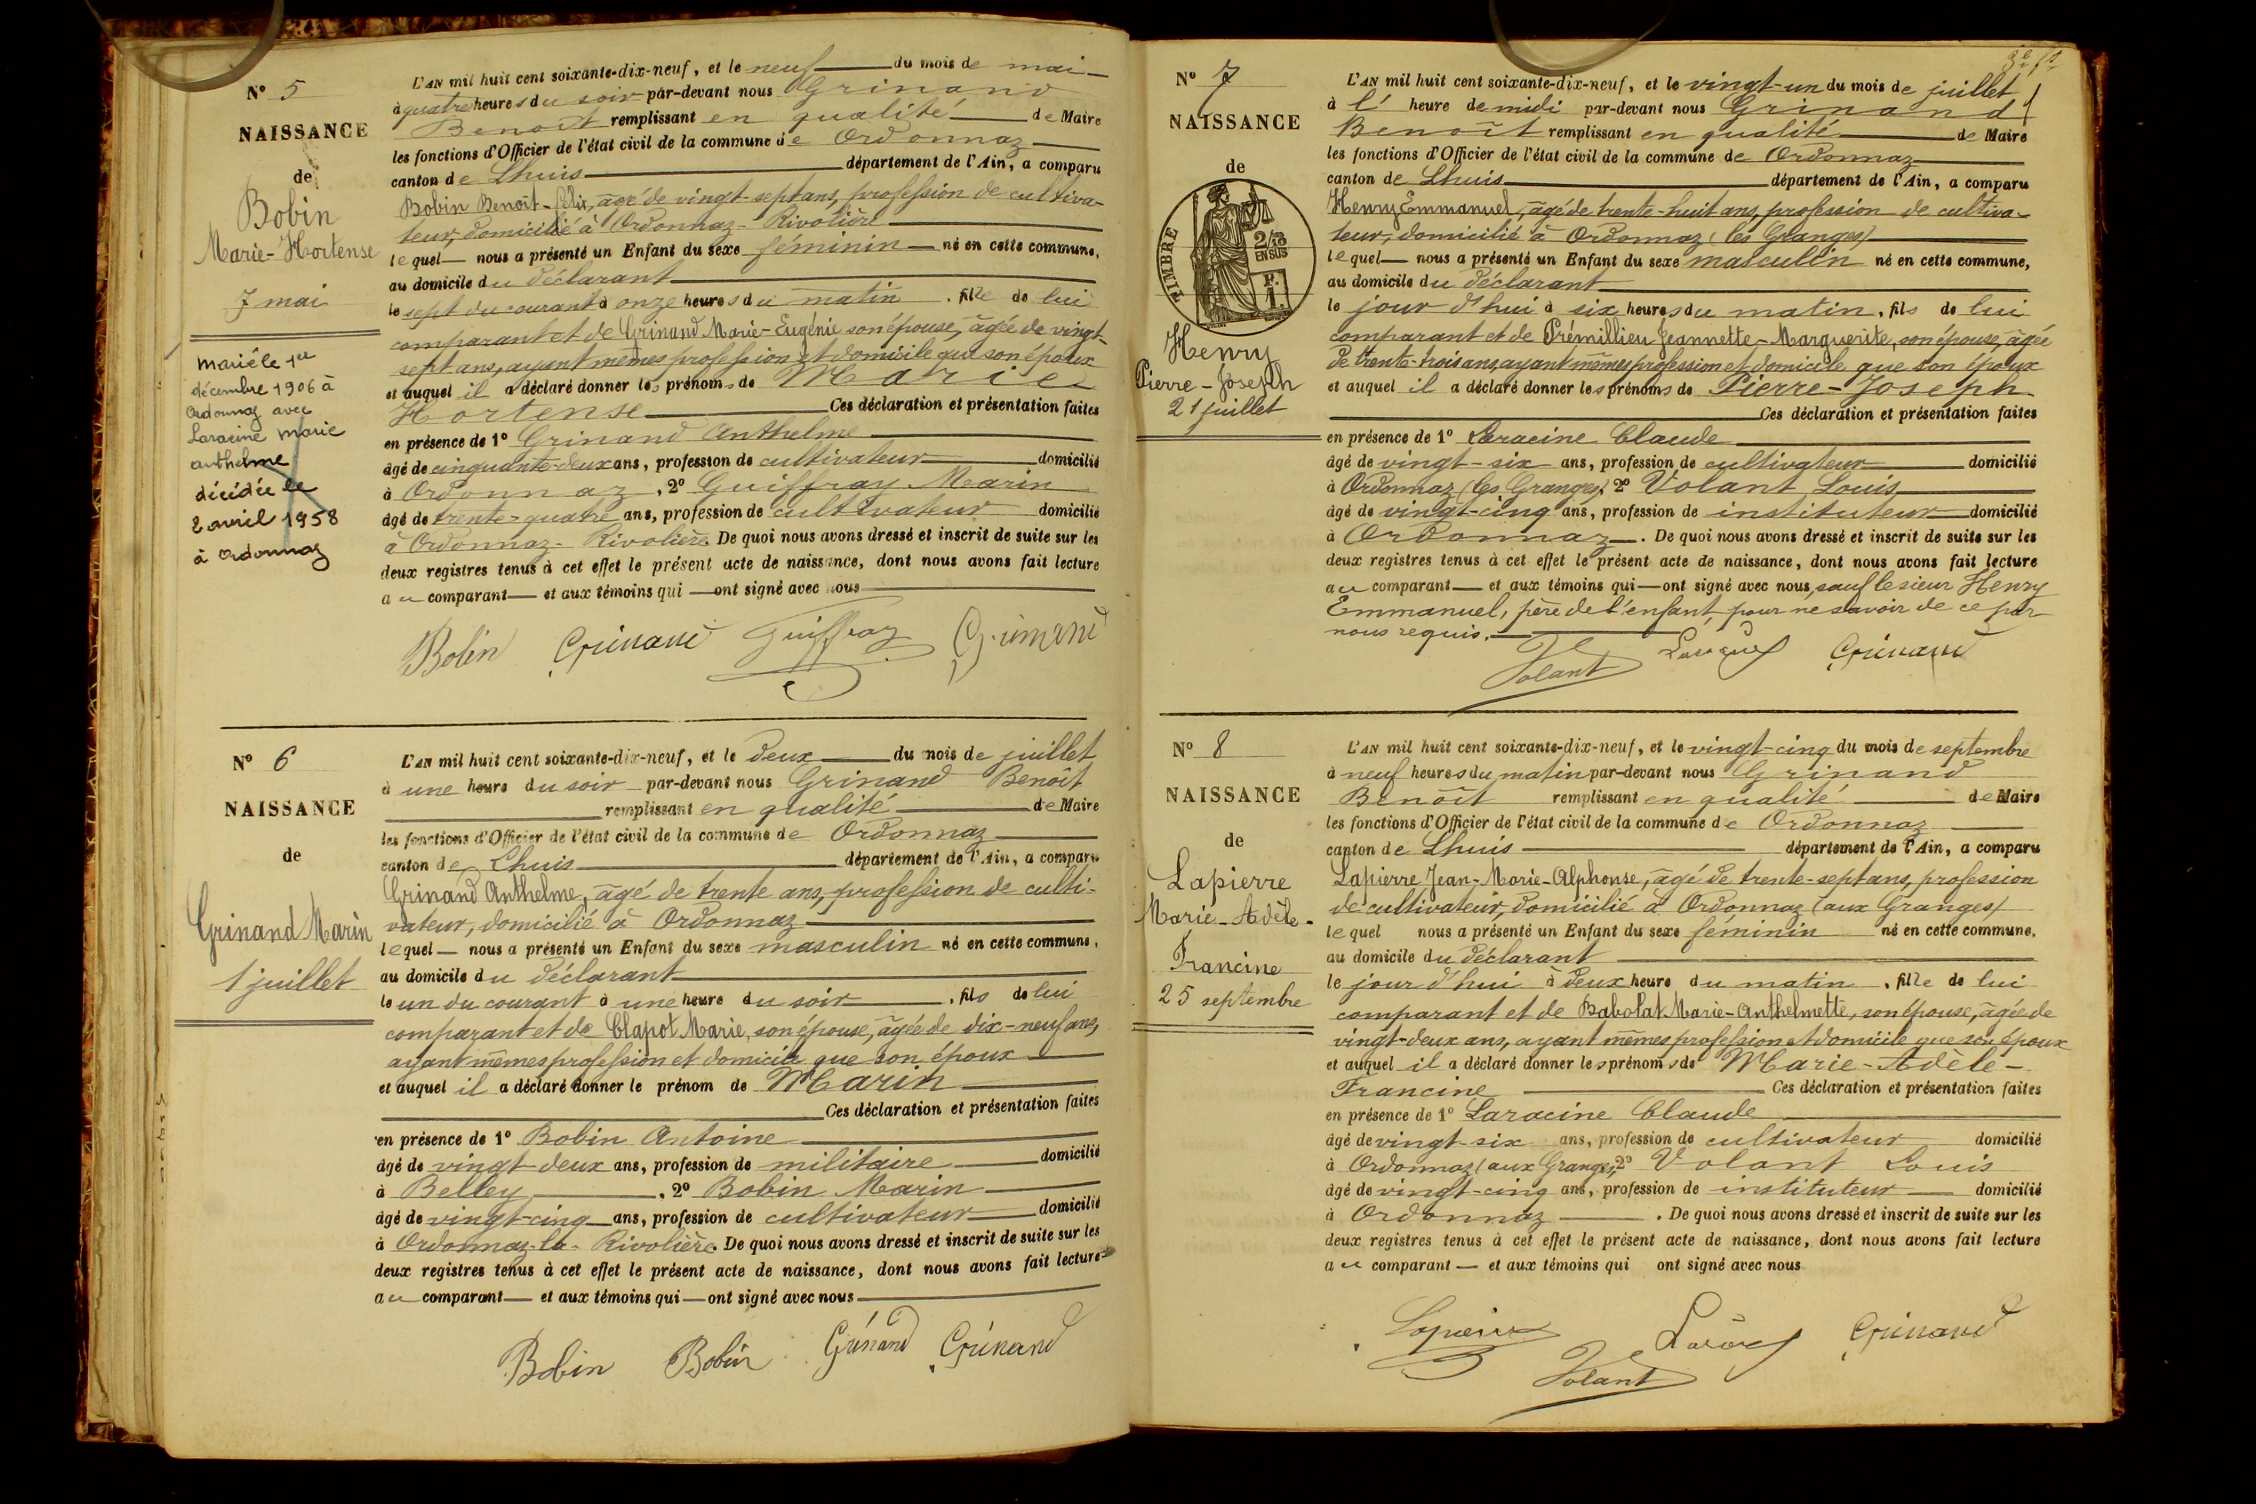 N° 5
NAISSANCE
de
Bobin
Marie-Hortense
7 mai
Mariée le 1er
décembre 1906 à
Ordonnaz avec
Laracine Marie
anthelme
décédée le
2 avril 1958
à Ordonnaz
L'AN mil huit cent soixante-dix-neuf, et le neuf du mois de mai
à quatre heures du soir par-devant nous Grinand
Benoît remplissant en qualité de Maire
les fonctions d'Officier de l'état civil de la commune de Ordonnaz
canton de Lhuis département de l'Ain, a comparu
Bobin Benoît-Félix, âgé de vingt-sept ans, profession de cultiva-
teur, domicilié à Ordonnaz-Rivolière
lequel nous a présenté un Enfant du sexe féminin né en cette commune,
au domicile du déclarant
le sept du courant à onze heures du matin, fille de lui
comparant et de Grinand Marie-Eugénie son épouse, âgée de vingt-
sept ans, ayant mêmes profession et domicile que son époux
et auquel il a déclaré donner les prénoms de Marie
Hortense Ces déclaration et présentation faites
en présence de 1° Grinand Anthelme
âgé de cinquante-deux ans, profession de cultivateur domicilié
à Ordonnaz, 2° Guiffray Marin
âgé de trente-quatre ans, profession de cultivateur domicilié
à Ordonnaz-Rivolière. De quoi nous avons dressé et inscrit de suite sur les
deux registres tenus à cet effet le présent acte de naissance, dont nous avons fait lecture
au comparant et aux témoins qui ont signé avec nous
Bobin Grinand Guiffray Grinand
N° 6
NAISSANCE
de
Grinand Marin
1 juillet
L'AN mil huit cent soixante-dix-neuf, et le deux du mois de juillet
à une heure du soir par-devant nous Grinand Benoît
remplissant en qualité de Maire
les fonctions d'Officier de l'état civil de la commune de Ordonnaz
canton de Lhuis département de l'Ain, a comparu
Grinand Anthelme, âgé de trente ans, profession de culti-
vateur, domicilié à Ordonnaz
lequel nous a présenté un Enfant du sexe masculin né en cette commune,
au domicile du déclarant
le un du courant à une heure du soir, fils de lui
comparant et de Clapot Marie, son épouse, âgée de dix-neuf ans,
ayant mêmes profession et domicile que son époux
et auquel il a déclaré donner le prénom de Marin
Ces déclaration et présentation faites
en présence de 1° Bobin Antoine
âgé de vingt-deux ans, profession de militaire domicilié
à Belley, 2° Bobin Marin
âgé de vingt-cinq ans, profession de cultivateur domicilié
à Ordonnaz-la-Rivolière. De quoi nous avons dressé et inscrit de suite sur les
deux registres tenus à cet effet le présent acte de naissance, dont nous avons fait lecture
au comparant et aux témoins qui ont signé avec nous
Bobin Bobin Grinand Grinand
N° 7
NAISSANCE
de
TIMBRE
2/10 EN SUS
P. 1.
Henry
Pierre-Joseph
21 juillet
L'AN mil huit cent soixante-dix-neuf, et le vingt-un du mois de juillet
à l' heure de midi par-devant nous Grinand
Benoît remplissant en qualité de Maire
les fonctions d'Officier de l'état civil de la commune de Ordonnaz
canton de Lhuis département de l'Ain, a comparu
Henry Emmanuel, âgé de trente-huit ans, profession de cultiva-
teur, domicilié à Ordonnaz (les Granges)
lequel nous a présenté un Enfant du sexe masculin né en cette commune,
au domicile du déclarant
le jour d'hui à six heures du matin, fils de lui
comparant et de Prémillieu Jeannette-Marguerite, son épouse, âgée
de trente-trois ans, ayant mêmes profession et domicile que son époux
et auquel il a déclaré donner les prénoms de Pierre-Joseph
Ces déclaration et présentation faites
en présence de 1° Laracine Claude
âgé de vingt-six ans, profession de cultivateur domicilié
à Ordonnaz (les Granges), 2° Volant Louis
âgé de vingt-cinq ans, profession de instituteur domicilié
à Ordonnaz. De quoi nous avons dressé et inscrit de suite sur les
deux registres tenus à cet effet le présent acte de naissance, dont nous avons fait lecture
au comparant et aux témoins qui ont signé avec nous, sauf le sieur Henry
Emmanuel, père de l'enfant, pour ne savoir de ce par
nous requis.
Volant Grinand
N° 8
NAISSANCE
de
Lapierre
Marie-Adèle-
Francine
25 septembre
L'AN mil huit cent soixante-dix-neuf, et le vingt-cinq du mois de septembre
à neuf heures du matin par-devant nous Grinand
Benoît remplissant en qualité de Maire
les fonctions d'Officier de l'état civil de la commune de Ordonnaz
canton de Lhuis département de l'Ain, a comparu
Lapierre Jean-Marie-Alphonse, âgé de trente-sept ans, profession
de cultivateur, domicilié à Ordonnaz (aux Granges)
lequel nous a présenté un Enfant du sexe féminin né en cette commune,
au domicile du déclarant
le jour d'hui à deux heure du matin, fille de lui
comparant et de Babolat Marie-Anthelmette, son épouse, âgée de
vingt-deux ans, ayant mêmes profession et domicile que son époux
et auquel il a déclaré donner les prénoms de Marie-Adèle-
Francine Ces déclaration et présentation faites
en présence de 1° Laracine Claude
âgé de vingt-six ans, profession de cultivateur domicilié
à Ordonnaz (aux Granges), 2° Volant Louis
âgé de vingt-cinq ans, profession de instituteur domicilié
à Ordonnaz. De quoi nous avons dressé et inscrit de suite sur les
deux registres tenus à cet effet le présent acte de naissance, dont nous avons fait lecture
au comparant et aux témoins qui ont signé avec nous
Lapierre Volant Grinand